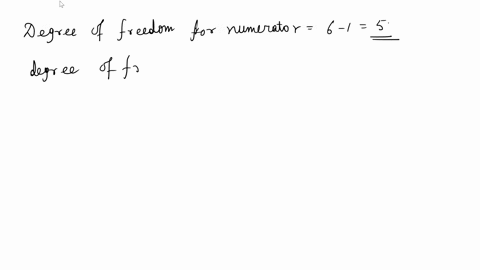 Degree of freedom for numerator = 6-1 = 5
degree of fr